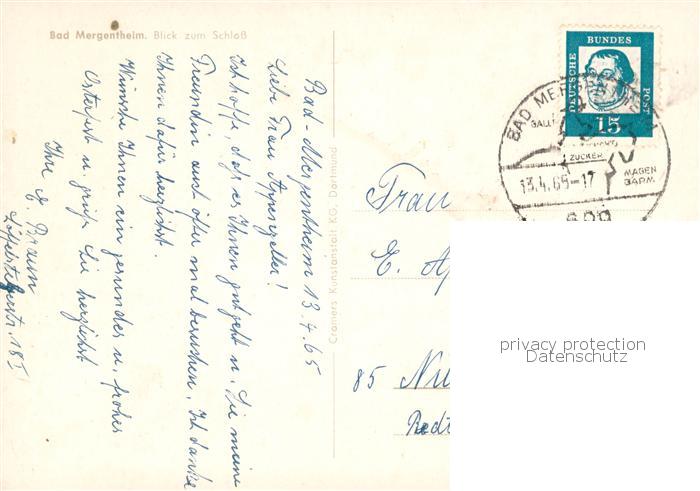 Bad Mergentheim. Blick zum Schloß
Bad-Mergentheim 13.4.65
Liebe Frau Appenzeller!
Ich hoffe, daß es Ihnen gut geht u. Sie meine
Freundin auch öfter mal besuchen. Ich danke
Ihnen dafür herzlichst.
Wünsche Ihnen ein gesundes u. frohes
Osterfest u. grüße Sie herzlichst
Ihre E. Braun
18 I
Cramers Kunstanstalt KG. Dortmund
DEUTSCHE BUNDES POST
15
BAD MERGENTHEIM
GALLE
ZUCKER
MAGEN
DARM
13.4.65-17
Frau
E. Ap
85 Nü
privacy protection
Datenschutz